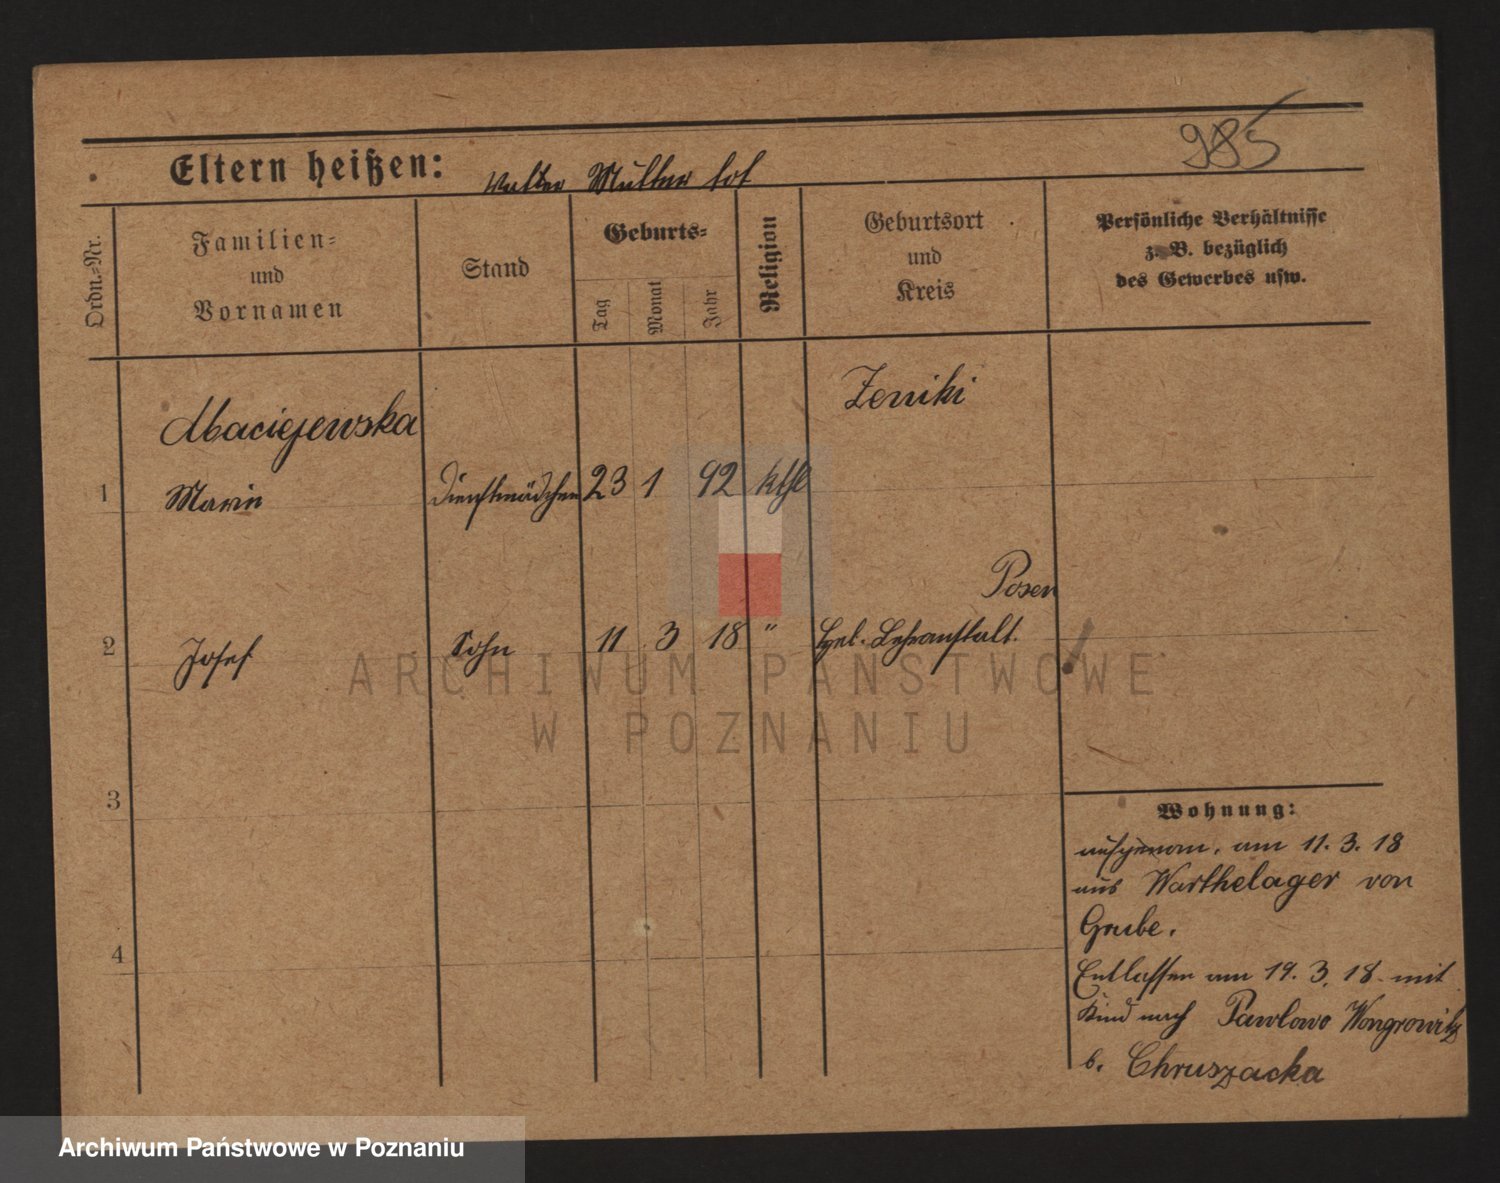 985
Eltern heißen: Vatter Mutter tot
Ordn.=Nr.
Familien=
und
Vornamen
Stand
Geburts=
Tag
Monat
Jahr
Religion
Geburtsort
und
Kreis
Persönliche Verhältnisse
z. B. bezüglich
des Gewerbes usw.
Maciejewska
Zerniki
1 Marie Dienstmädchen 23 1 92 kthl
Posen
2 Josef Sohn 11 3 18 " Lehranstalt.
3
4
Wohnung:
aufgenom. am 11. 3. 18
aus Warthelager von
Grube.
Entlassen am 19. 3. 18 mit
Kind nach Pawlowo Wongrowitz
b. Chruszacka
ARCHIWUM PAŃSTWOWE
W POZNANIU
Archiwum Państwowe w Poznaniu